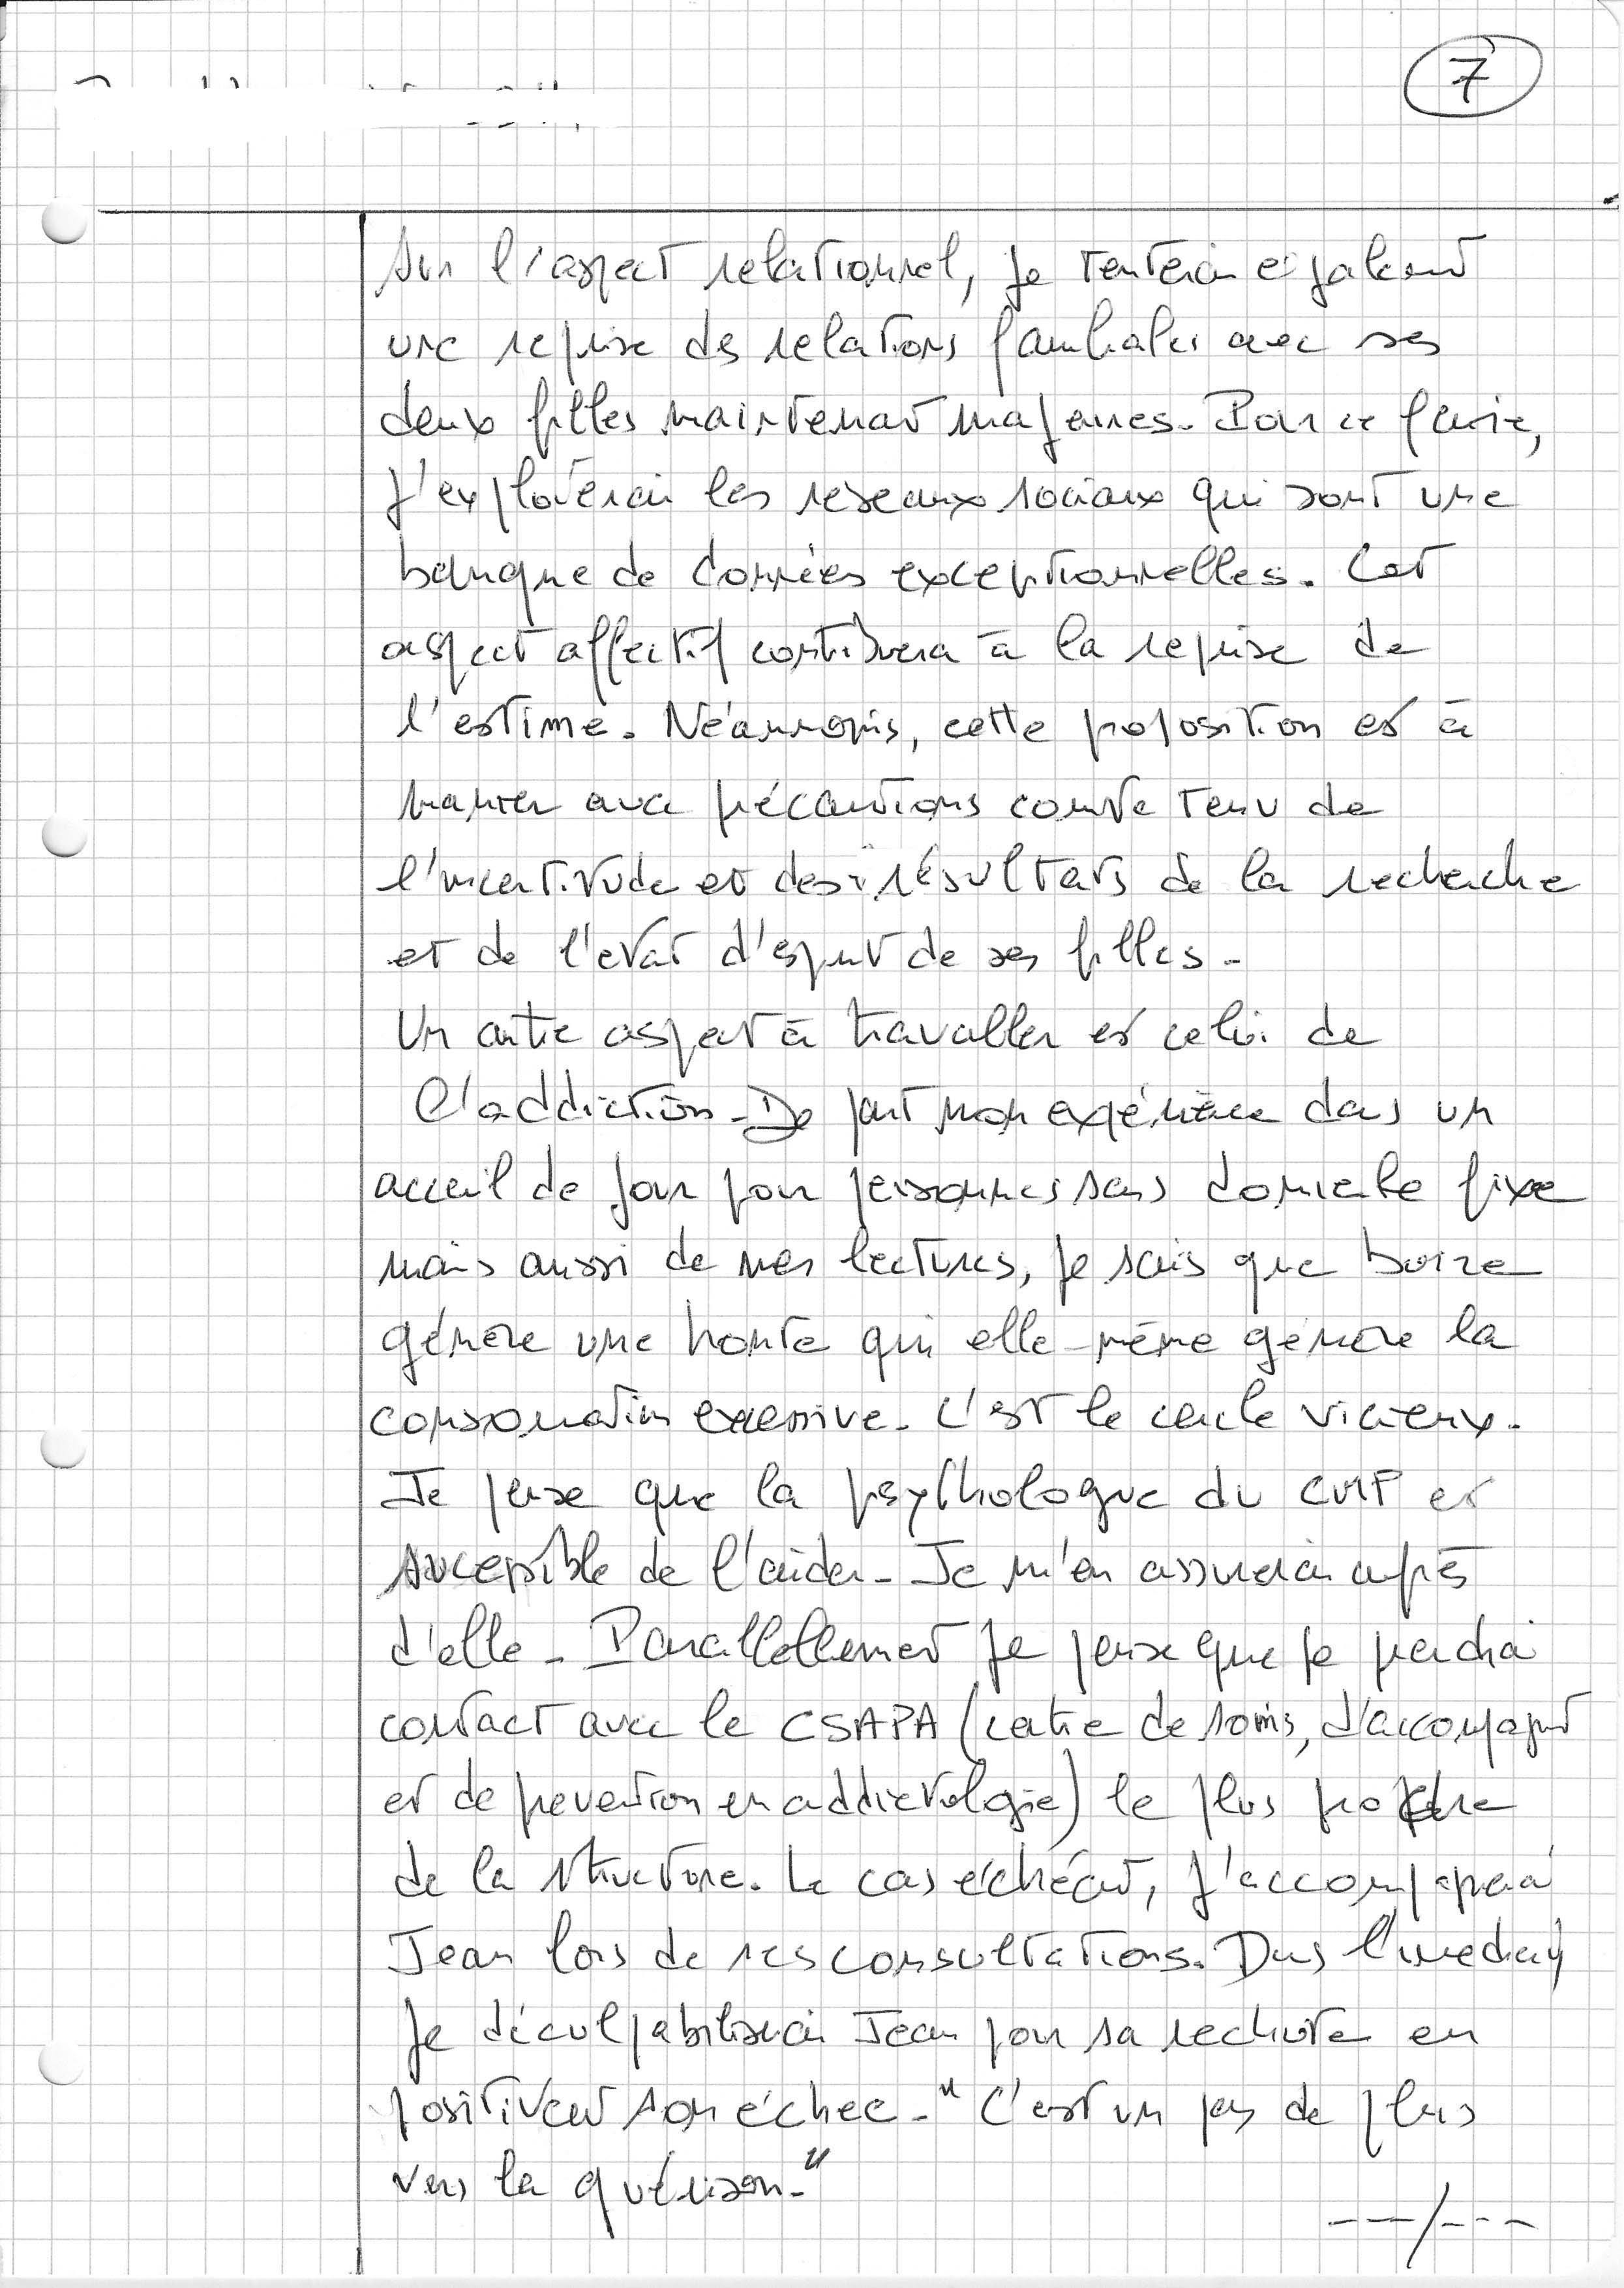 7
Sur l'aspect relationnel, je tenterai également
une reprise des relations familiales avec ses
deux filles maintenant majeures. Pour ce faire,
j'explorerai les réseaux sociaux qui sont une
banque de données exceptionnelles. Cet
aspect affectif contribuera à la reprise de
l'estime. Néanmoins, cette proposition est à
manier avec précautions compte tenu de
l'incertitude et des résultats de la recherche
et de l'état d'esprit de ses filles.
Un autre aspect à travailler est celui de
l'addiction. De part mon expérience dans un
acceuil de jour pour personnes sans domicile fixe
mais aussi de mes lectures, je sais que boire
génère une honte qui elle-même génère la
consommation excessive. C'est le cercle vicieux.
Je pense que la psychologue du CMP est
suceptible de l'aider. Je m'en assurerai auprès
d'elle. Parallellement je pense que je prendrai
contact avec le CSAPA (centre de soins, d'accompagnt
et de prevention en addictologie) le plus proche
de la structure. Le cas échéant, j'accompagnerai
Jean lors de ses consultations. Dans l'immédiat,
je déculpabiliserai Jean pour sa rechute en
positivant son échec. "C'est un pas de plus
vers la guérison."
---/---